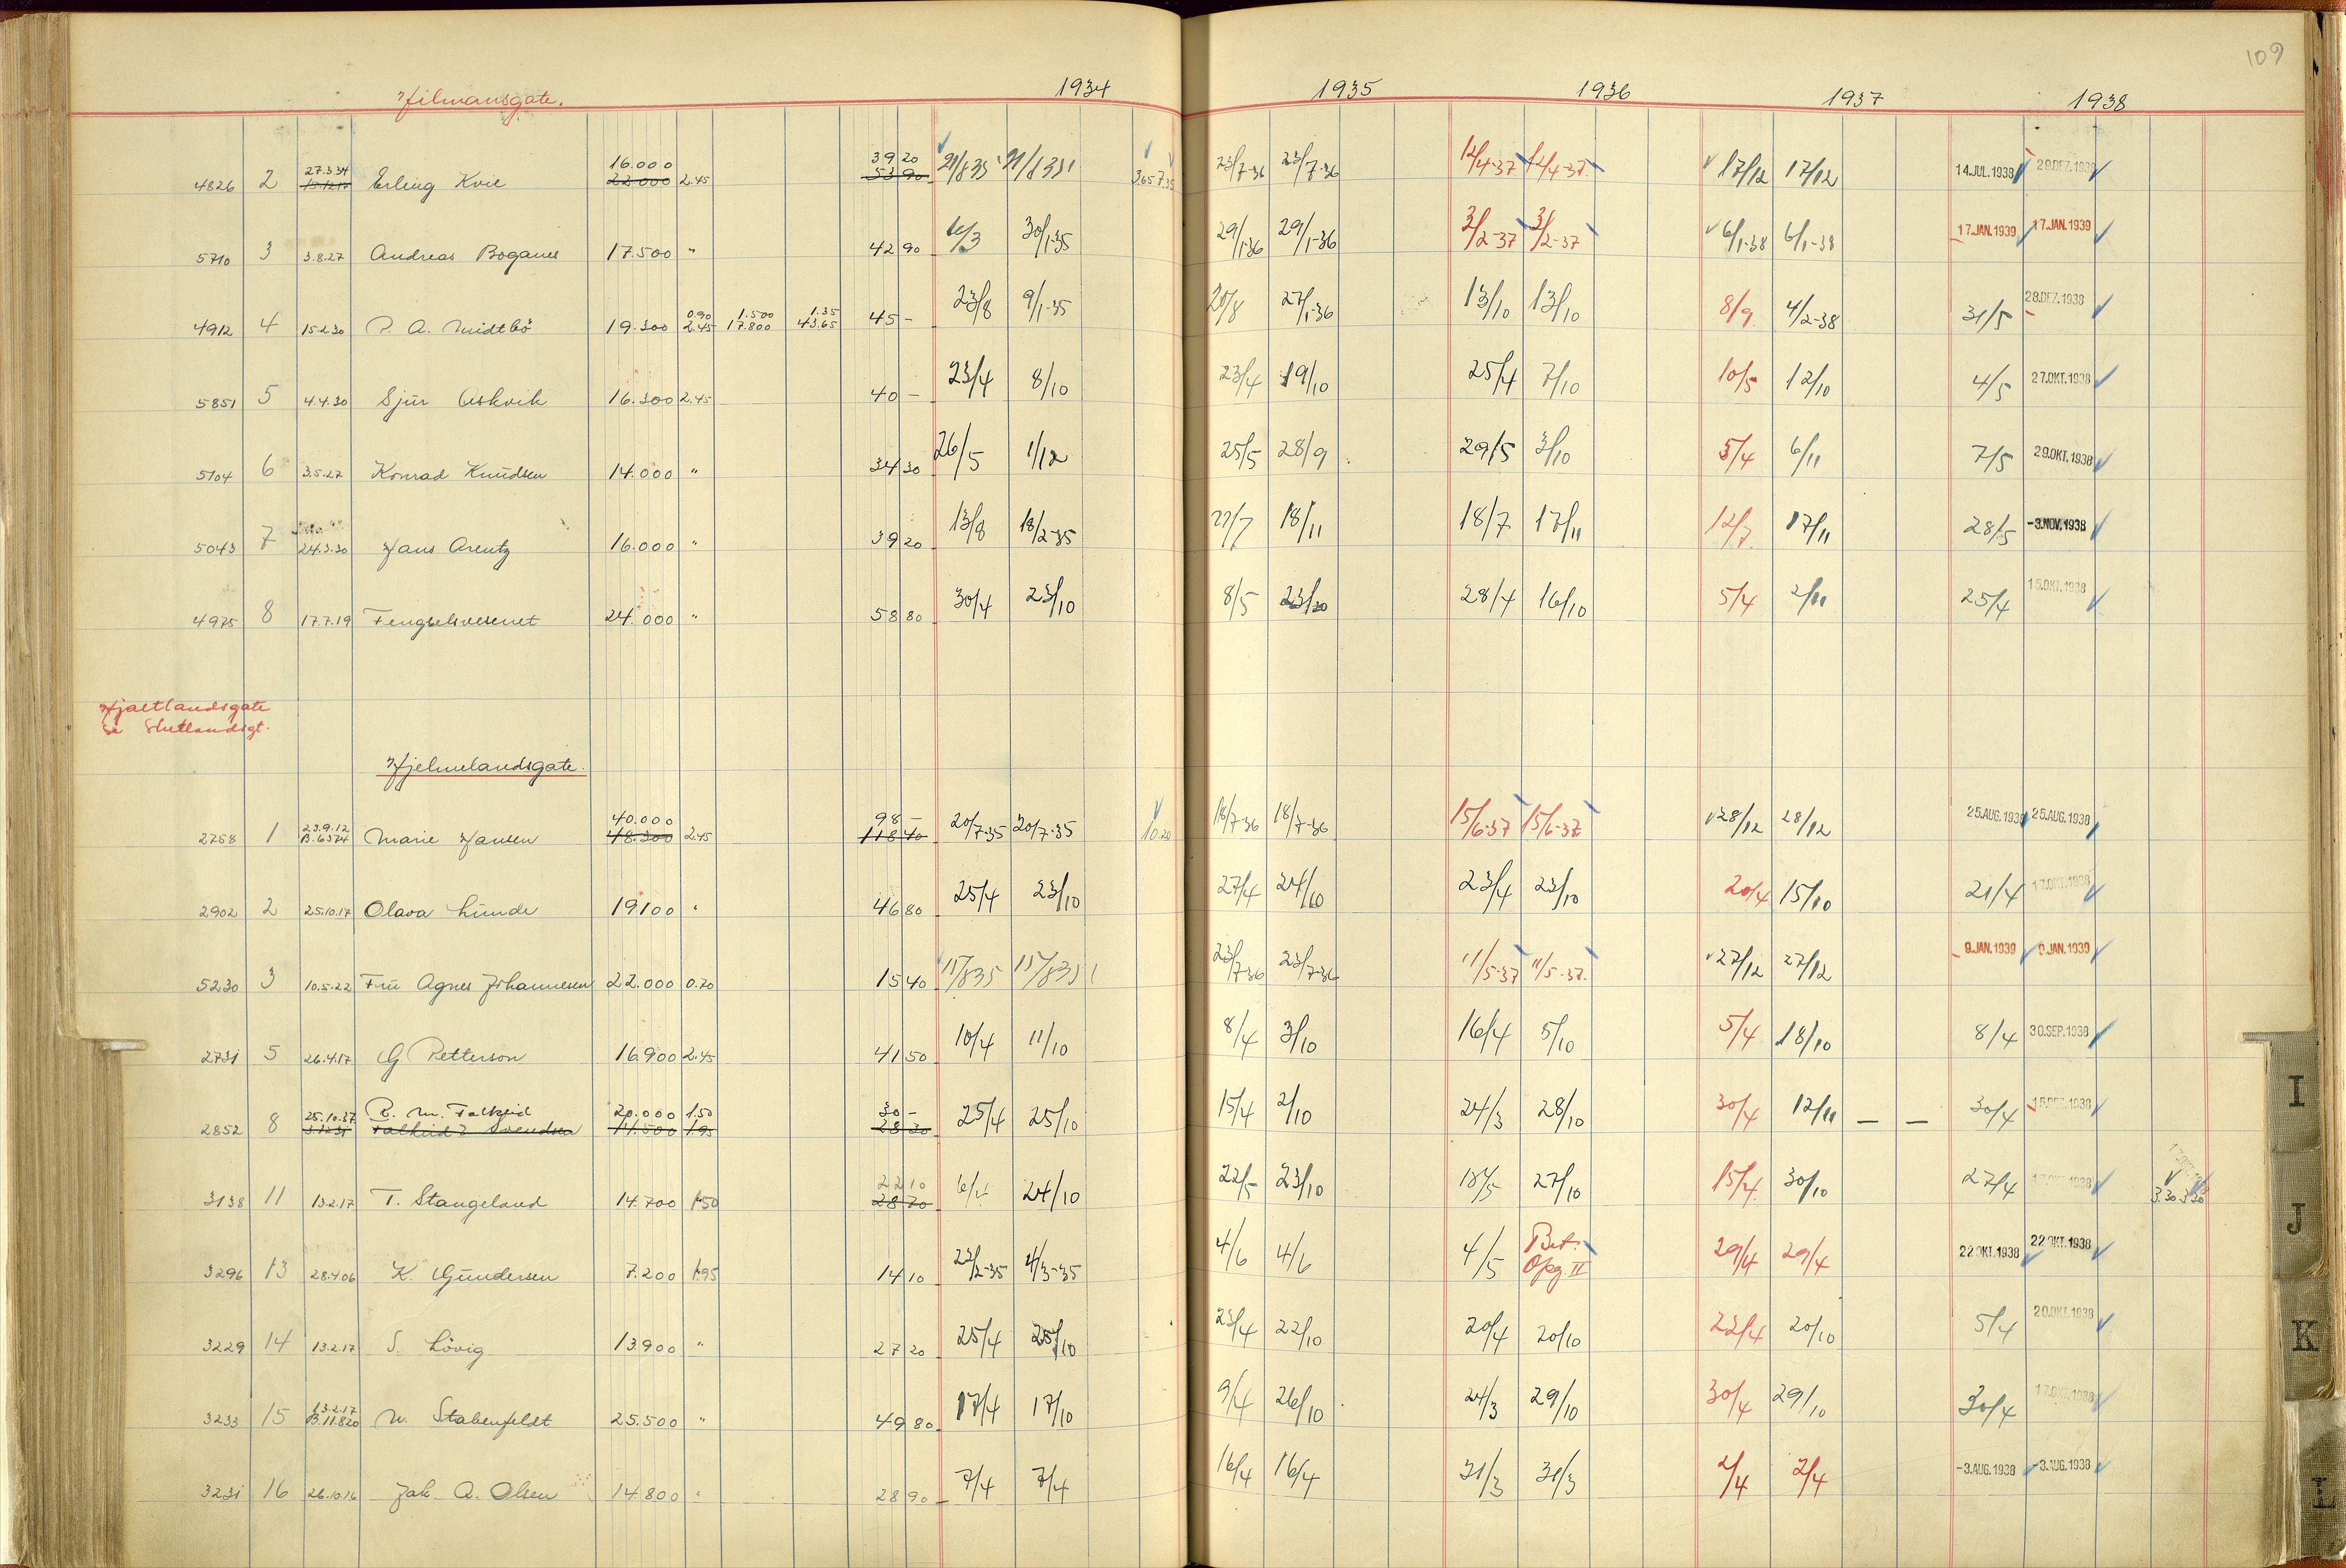 109
Hilmansgate. 1934 1935 1936 1937 1938
16.000 39 20
27.3.34
4826 2 Erling Kvie 22.000 2.45 53 90 21/8 35 21/8 35 3.65 7.35 23/7-36 23/7-36 12/4-37 12/4-37 17/12 17/12 14.JUL.1938 29.DEZ.1938
5710 3 3.8.27 Andreas Boganes 17.500 " 42 90 30/1-35 29/1-36 29/1-36 3/2-37 3/2-37 6/1-38 6/1-38 17.JAN.1939 17.JAN.1939
0.90 1.500 1.35
4912 4 15.2.30 P. A. Midtbö 19.300 2.45 17.800 43.65 45 - 23/8 9/1-35 20/8 27/1-36 13/10 13/10 8/9 4/2-38 31/5 28.DEZ.1938
5851 5 4.4.30 Sjur Askvik 16.300 2.45 40 - 23/4 8/10 23/4 19/10 25/4 7/10 10/5 12/10 4/5 27.OKT.1938
5104 6 3.5.27 Konrad Knudsen 14.000 " 34 30 26/5 1/12 25/5 28/9 29/5 3/10 5/4 6/11 7/5 29.OKT.1938
5043 7 24.3.30 Hans Arentz 16.000 " 39 20 13/8 18/2-35 27/7 18/11 18/7 17/11 12/7 17/11 28/5 -3.NOV.1938
4975 8 17.7.19 Fengselsvesenet 24.000 " 58 80 30/4 23/10 8/5 23/10 28/4 16/10 5/4 2/11 25/4 15.OKT.1938
Hjaltlandsgate
se Shetlandsgt.
Hjelmelandsgate.
23.9.12 40.000 98 -
2758 1 B.6374 Marie Hansen 48.300 2.45 118 40 20/7-35 20/7-35 10.20 18/7-36 18/7-36 15/6-37 15/6-37 28/12 28/12 25.AUG.1938 25.AUG.1938
2902 2 25.10.17 Olava Lunde 19100 " 46 80 25/4 23/10 27/4 24/10 23/4 23/10 20/4 15/10 21/4 17.OKT.1938
5230 3 10.5.22 Fru Agnes Johannesen 22.000 0.70 15 40 15/8 35 15/8 35 23/7-36 23/7-36 11/5-37 11/5-37 27/12 27/12 9.JAN.1939 9.JAN.1939
2731 5 26.4.17 G Petterson 16.900 2.45 41 50 10/4 11/10 8/4 3/10 16/4 5/10 5/4 18/10 8/4 30.SEP.1938
25.10.37 R. M. Falkeid 20.000 1.50 30 -
2852 8 3.12.31 Falkeid & Svendsen 14.500 1.95 28 30 25/4 25/10 15/4 2/10 24/3 28/10 30/4 12/11 - - 30/4 15.DEZ.1938
22 10
3138 11 13.2.17 T. Stangeland 14.700 1.50 28 70 24/10 22/5 23/10 18/5 27/10 15/4 30/10 27/4 17.OKT.1938 3.30 3.30
3296 13 28.4.06 K. Gundersen 7.200 1.95 14 10 22/2-35 4/3-35 4/6 4/6 4/5 Bet. Opg. II 29/4 29/4 22.OKT.1938 22.OKT.1938
3229 14 13.2.17 S. Lövig 13.900 " 27 20 25/4 25/10 23/4 22/10 20/4 20/10 22/4 20/10 5/4 20.OKT.1938
13.2.17
3233 15 B.11.820 N. Stabenfeldt 25.500 " 49 80 17/4 17/10 9/4 26/10 24/3 29/10 30/4 29/10 30/4 17.OKT.1938
3231 16 26.10.16 Jak. A. Olsen 14.800 " 28 90 7/4 7/4 16/4 16/4 31/3 31/3 2/4 2/4 -3.AUG.1938 -3.AUG.1938
I
J
K
L